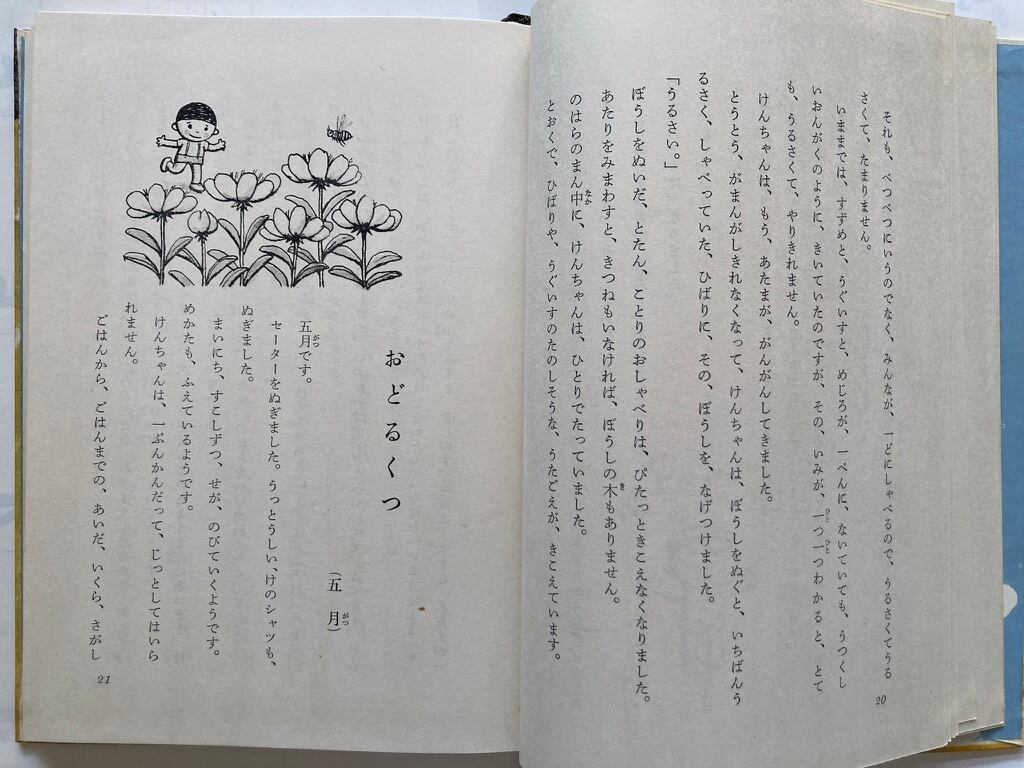 それも、べつべつにいうのでなく、みんなが、一どにしゃべるので、うるさくてうる
さくて、たまりません。
いままでは、すずめと、うぐいすと、めじろが、一ぺんに、ないていても、うつくし
いおんがくのように、きいていたのですが、その、いみが、一つ一つわかると、とて
も、うるさくて、やりきれません。
けんちゃんは、もう、あたまが、がんがんしてきました。
とうとう、がまんがしきれなくなって、けんちゃんは、ぼうしをぬぐと、いちばんう
るさく、しゃべっていた、ひばりに、その、ぼうしを、なげつけました。
「うるさい。」
ぼうしをぬいだ、とたん、ことりのおしゃべりは、ぴたっときこえなくなりました。
あたりをみまわすと、きつねもいなければ、ぼうしの木もありません。
のはらのまん中に、けんちゃんは、ひとりでたっていました。
とおくで、ひばりや、うぐいすのたのしそうな、うたごえが、きこえています。
20
おどるくつ
(五月)
五月です。
セーターをぬぎました。うっとうしい、けのシャツも、
ぬぎました。
まいにち、すこしずつ、せが、のびていくようです。
めかたも、ふえているようです。
けんちゃんは、一ぷんかんだって、じっとしてはいら
れません。
ごはんから、ごはんまでの、あいだ、いくら、さがし
21